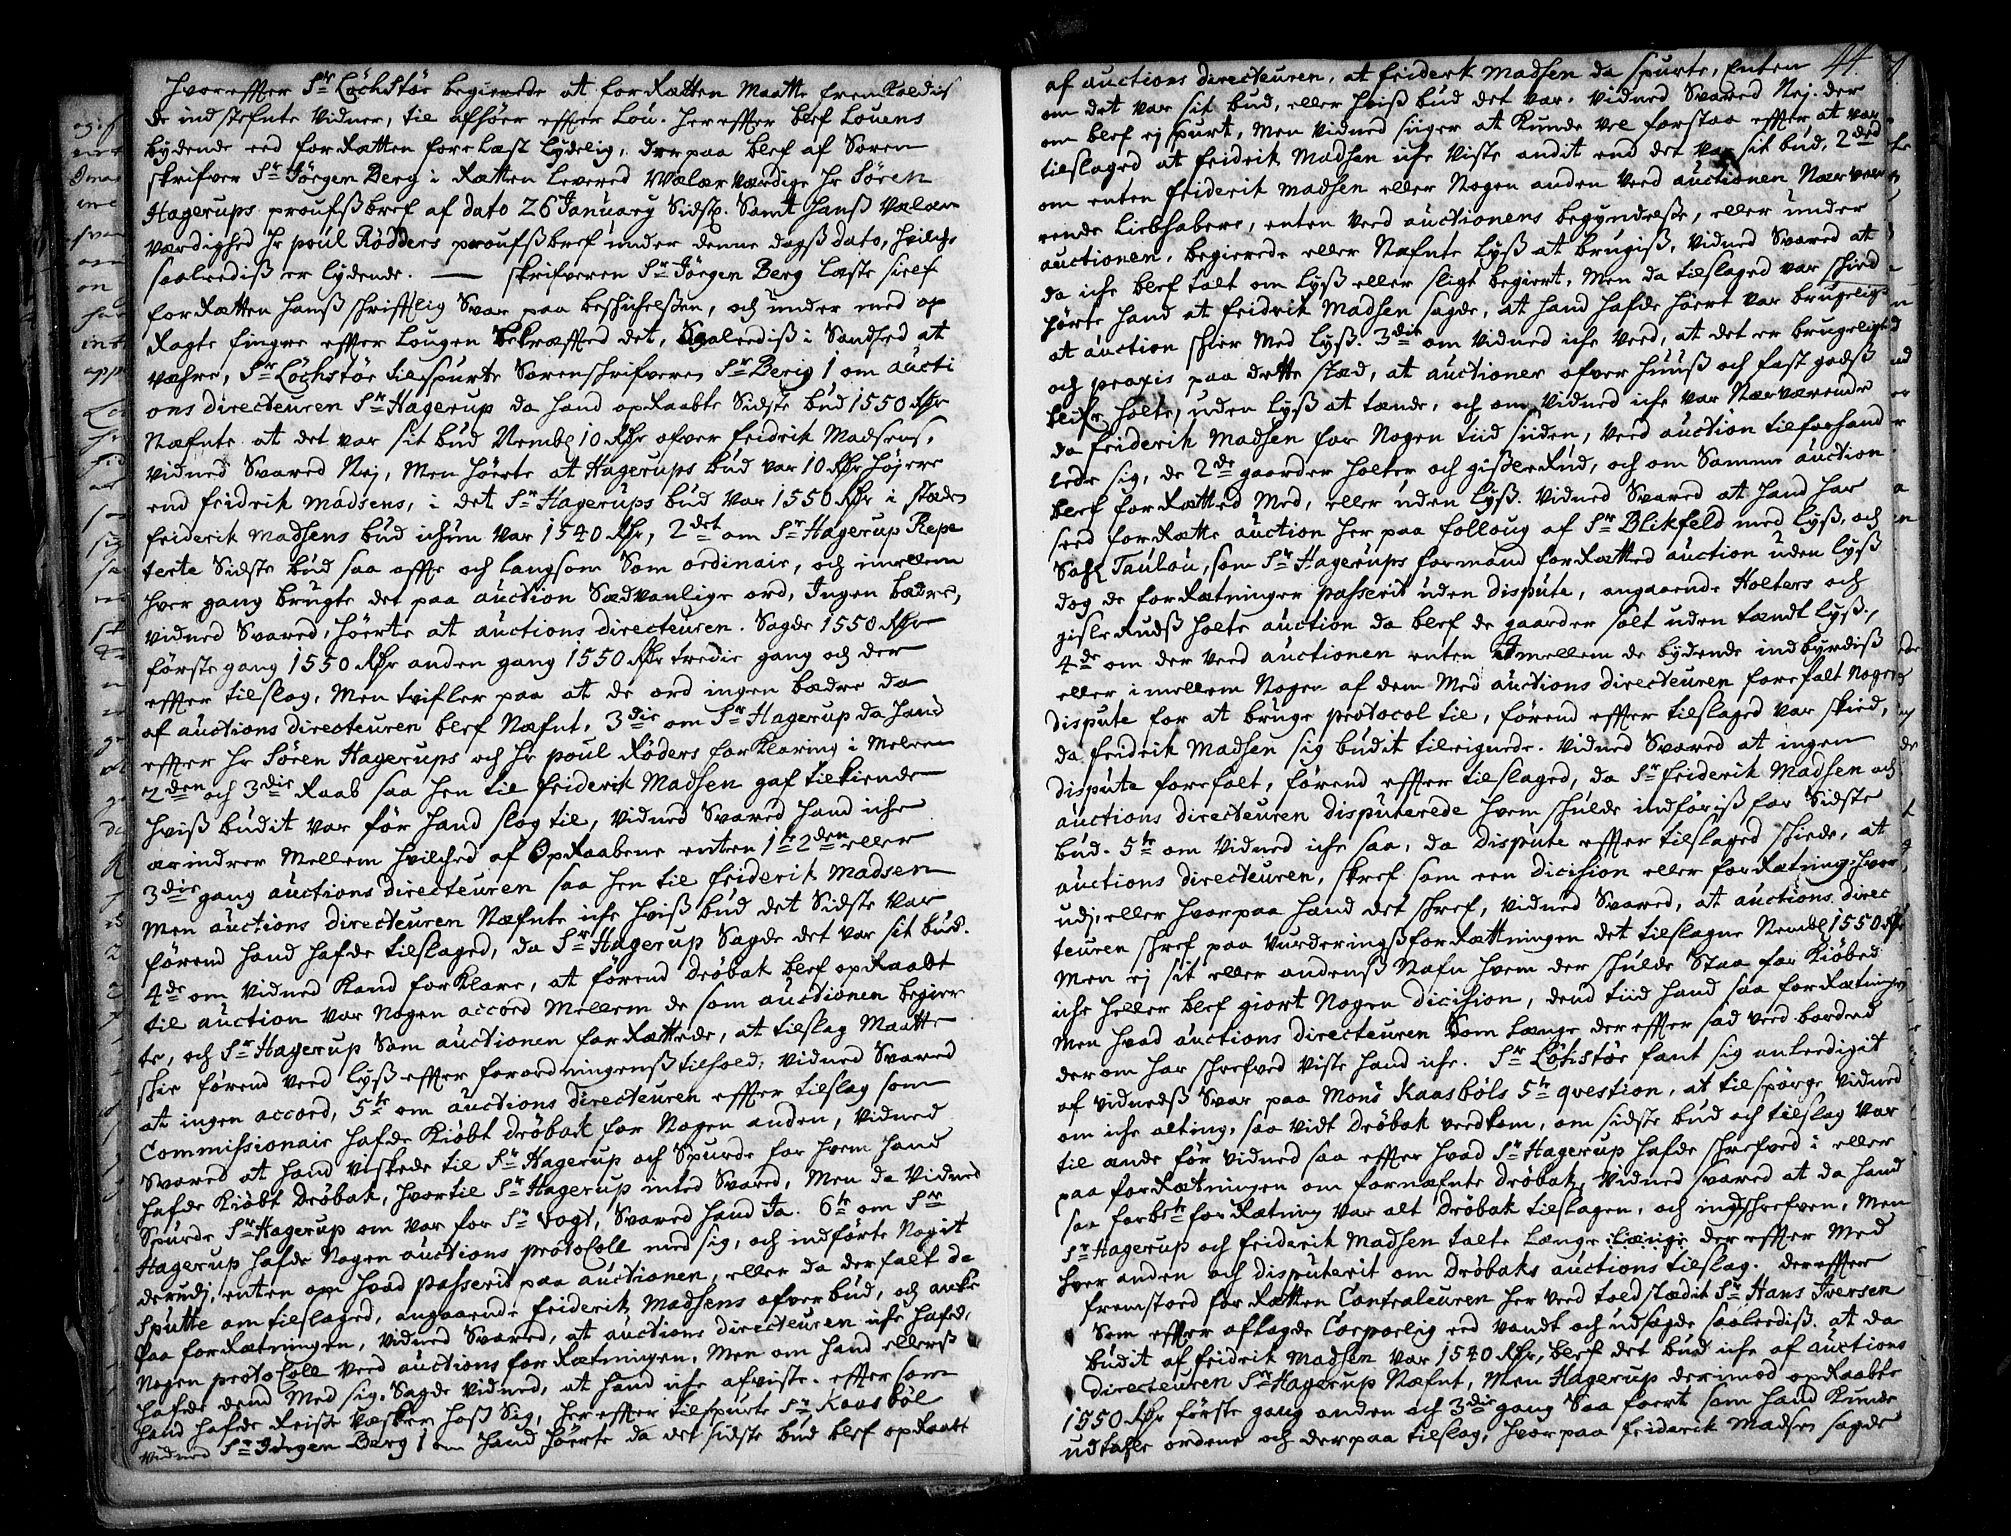 Hvoreffter Sr Lochstör begierede at for Retten Maatte fremkaldis
de indstefnte Vidner, til afhör effter Lou. her effter blef Louens
bydende eed for Retten forelæst lydelig, der paa blef af Soren
skrifver Sr Jörgen Berg i Retten levered Wælærværdige Hr Sören
Hagerups proufsbref af dato 26 January Sidstl. Samt hanß Vælær
værdighed Hr poul Rödders proufsbref under denne dagß dato, hvilche
saaleediß er lydende. — skrifveren Sr Jörgen Berg læste sielf
for Retten hanß skrifftlig Svar paa beskichelsen, och under med op
Ragte fingre effter Lougen bekræffted det, Saaleediß i Sandhed at
væhre, Sr Lochstör tilspurte Sorenschrifveren Sr Berg 1 om aucti
ons directeuren Sr Hagerup da hand opRaabte Sidste bud 1550 Rdr
Næfnte at det var sit bud Nembl 10 Rdr ofver fridrik Madsens,
vidned Svared Nej, Men höerte at Hagerups bud var 10 Rdr höjere
end fridrik Madsens, i det Sr Hagerups bud var 1550 Rdr i stæden
friderik Madsens bud ichun var 1540 Rdr, 2det om Sr Hagerup Repe
terte Sidste bud saa offte och langsom Som ordinair, och imellem
hver gang brugte det paa auction Sædvanlige ord, Ingen bædre,
vidned Svared, hörte at auctions directeuren. Sagde 1550 Rdr
förste gang 1550 Rdr anden gang 1550 Rdr tredie gang och der
effter tilslog, Men tvifler paa at de ord ingen bædre da
af auctions directeuren blef Næfnt, 3die om Sr Hagerup da hand
effter Hr Sören Hagerups och Hr poul Röders forklaring i Melem
2den och 3die Raab saa hen til friderik Madsen gaf tilkiende
hviß budit var för hand slog til, vidned Svared hand iche
ærindrer Mellem hvilched af OpRaabene enten 1te 2den eller
3die gang auctions directeuren saa hen til friderik Madsen
Men auctions directeuren Næfnte iche hviß bud det Sidste var
förend hand hafde tilslaged, da Sr Hagerup Sagde det var sit bud.
4de om vidned kand forklare, at förend Dröbak blef opRaabt
til auction var Nogen accord Mellem de som auctionen begier
te, och Sr Hagerup Som auctionen forRettede, at tilslag Maatte
skie förend veed lyß effter forordningenß tilhold; vidned Svared
at ingen accord, 5te om auctions directeuren effter tilslag som
Commissionair hafde Kiöbt Dröbak for Nogen anden, vidned
Svared at hand viskede til Sr Hagerup och Spurde for hvem hand
hafde Kiöbt Dröbak, hvortil Sr Hagerup inted Svared, Men da Vidned
Spurde Sr Hagerup om var for Sr Vogt, Svared hand Ja. 6te om Sr
Hagerup hafde Nogen auctions protokoll med sig, och indförte Nogit
derudj, enten om hvad passerit paa auctionen, eller da der falt da
sputte om tilslaged, angaaende friderik Madsens ofverbud, och anke
paa forRetningen, vidned Svared, at auctions directeuren iche hafde
Nogen protokoll veed auctions forRetningen, Men om hand ellerß
hafde dend Med sig. Sagde Vidned, at hand iche afviste. effter som
hand hafde Reise væsker hoß Sig, her effter tilspurte Sr Kaasböl
vidned Sr Jörgen Berg 1 om hand höerte da det sidste bud blef opRaabt
44.
af auctions directeuren, at friderk Madsen da spurte, Enten
om det var sit bud, eller hviß bud det var. vidned Svared Nej. der
om blef ej spurt, Men vidned siuger at kunde vel forstaa effter at var
tilslaged at fridrik Madsen iche Viste andit end det var sit bud, 2ded
om enten friderik Madsen eller Nogen anden Veed auctionen Nærvær
rende Liebhabere, enten Veed auctionens begyndelße, eller under
auctionen, begierede eller Næfnte lyß at brugiß, vidned Svared at
da iche blef talt om lyß eller sligt begiert, Men da tilslaged var skied
hörte hand at fridrik Madsen sagde, at hand hafde höert var brugeligt
at auction skier Med lyß. 3die om vidned iche veed, at det er brugeligt
och praxis paa dette stæd, at auctioner ofver huuß och fast godß
blifr holte, uden lyß at tænde, och om vidned iche var Nærværende
da friderik Madsen for Nogen tiid siiden, Veed auction tilforhand
lede sig, de 2de gaarder Holter och gislerRud, och om Samme auction
blef forRetted Med, eller uden lyß. vidned Svared at hand har
seed forRette auction her paa folloug af Sr Blikfeld med lyß, och
Sahl Taulou, som Sr Hagerups formand forRetted auction uden lyß
dog de forRetninger passerit uden dispute, angaaende Holters och
gisleRudß holte auction da blef de gaarder solt uden tændt lyß.
4de om der veed auctionen enten Imellem de bydende indbyrdiß
eller imellem Nogen af dem Med auctions directeuren forefalt Nogen
dispute for at bruge protocol til, förend effter tilslaged var skied,
da fridrik Madsen sig budit tileignede. vidned Svared at ingen
dispute forefalt, förend effter tilslaged, da Sr friderik Madsen och
auctions directeuren disputerede hvem skulde indföriß for Sidste
bud. 5te om vidned iche saa, da Dispute effter tilslaged skiede, at
auctions directeuren, skref som een Dicision eller forRetning, hvor
udj, eller hvorpaa hand det skref, vidned Svared, at auctions direc
teuren skref paa vurderingsforRettningen det tilslagne Nembl 1550 Rdr
Men ej sit eller andenß Nafn hvem der skulde Staa for Kiöbed
iche heller blef giort Nogen Dicision, dend tiid hand saa forRetningen
Men hvad auctions directeuren Som længe der effter sad veed borded
derom har skrefved viste hand iche. Sr Löchstör fant sig anleediget
af vidnedß Svar paa Monß Kaasböls 5te qvestion, at tilspörge vidned
om iche alting, saa vidt Dröbak vedkom, om sidste bud och tilslag var
til ænde för vidned saa effter hvad Sr Hagerup hafde skrefved i eller
paa forRetningen om fornæfnte Dröbak, Vidned svared at da hand
saa forbte forRetning var alt Dröbak tilslagen, och indskrefven, Men
Sr Hagerup och friderik Madsen talte længe længe der effter Med
hver anden och disputerit om Dröbaks auctions tilslag. der effter
fremstoed for Retten Contraleuren her Veed toldstædit Sr Hans Iversen
Som effter aflagde Corporlig eed vandt och udsagde saaleediß. at da
budit af fridrik Madsen var 1540 Rdr, blef det bud iche af auctions
Directeuren Sr Hagerup Næfnt, Men Hagerup derimod opRaabte
1550 Rdr förste gang anden och 3die gang Saa foert som hand kunde
udtahle ordene och der paa tilslog, hvorpaa friderik Madsen sagde